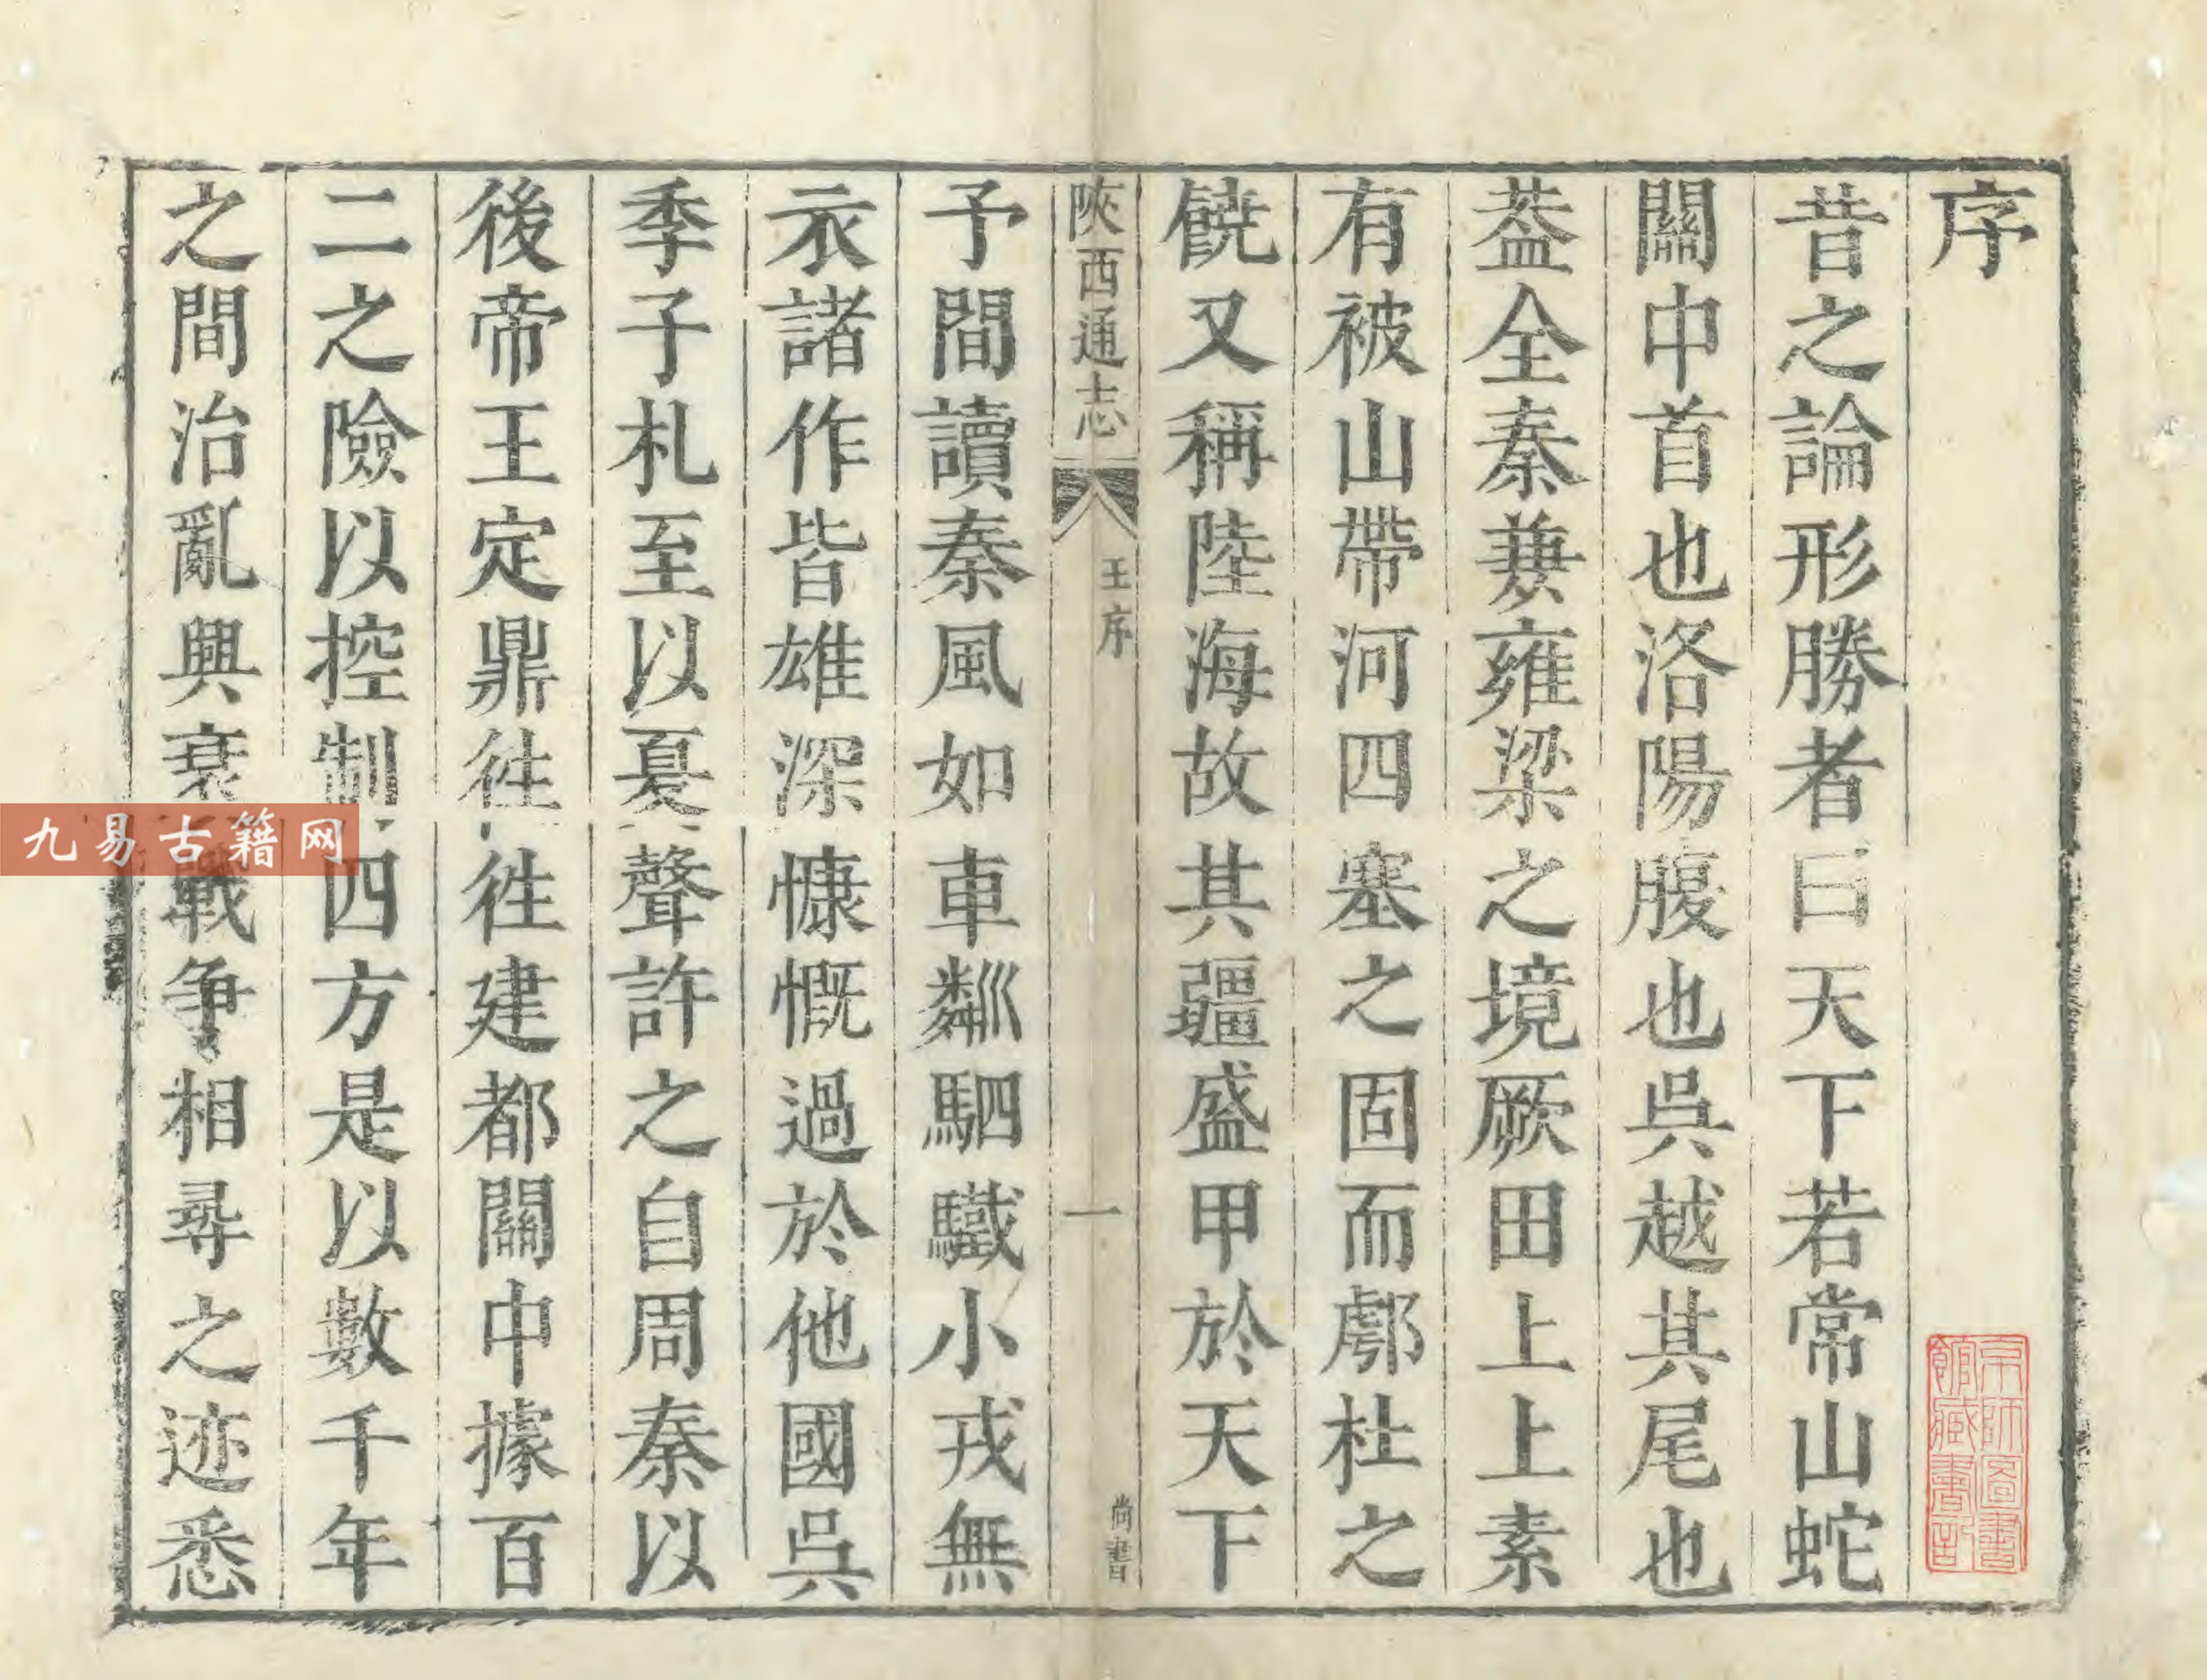 序
昔之論形勝者曰天下若常山蛇
關中首也洛陽腹也吳越其尾也
葢全秦兼雍梁之境厥田上上素
有被山帶河四塞之固而鄠杜之
饒又稱陸海故其疆盛甲於天下
陝西通志
王序
一
尚書
予間讀秦風如車鄰駟驖小戎無
衣諸作皆雄深慷慨過於他國吳
季子札至以夏聲許之自周秦以
後帝王定鼎徃徃建都關中據百
二之險以控制四方是以數千年
之間治亂興衰戰爭相尋之迹悉
京師圖書
館臧書記
九易古籍网